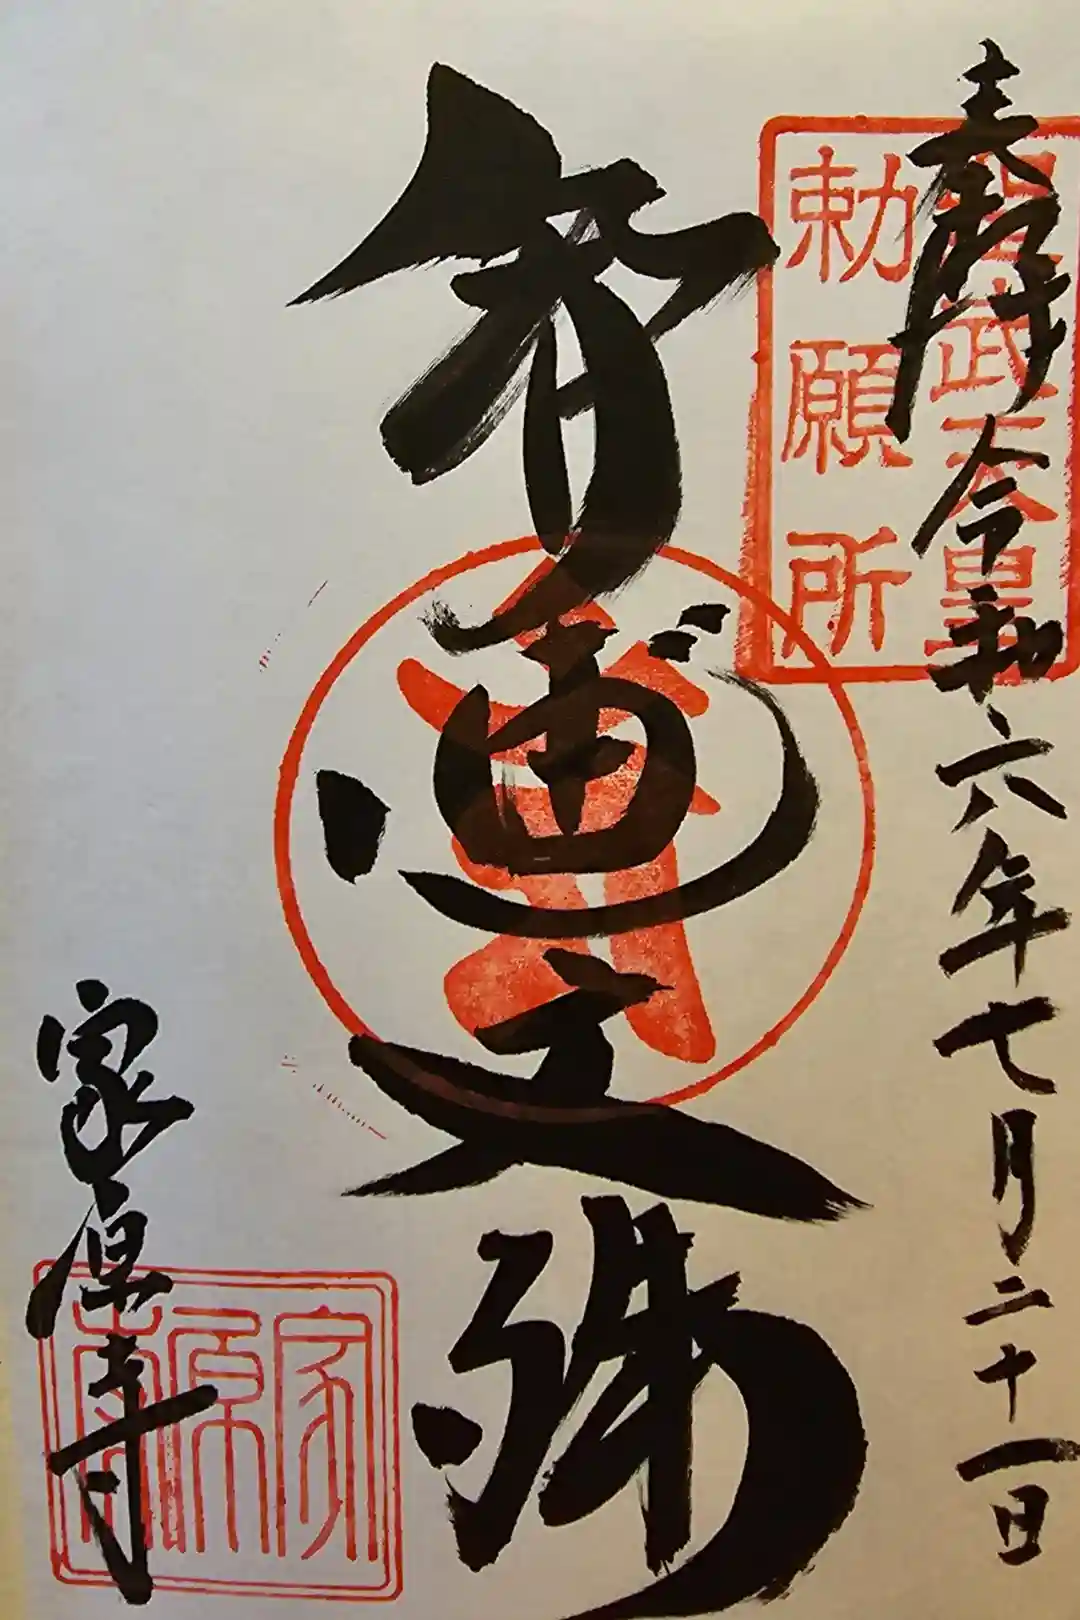 奉拝 令和六年七月二十一日
聖武天皇
勅願所
智恵文殊
家原寺
家原寺